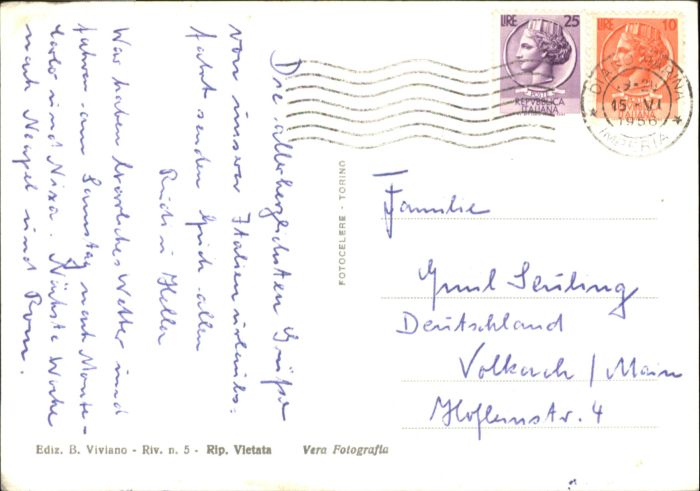 Die allerherzlichsten Grüße
von unsrer Italienurlaubs-
fahrt senden Euch allen
Heller
Wir haben herrliches Wetter und
fahren am Samstag nach Monte-
carlo und Nizza. Nächste Woche
nach Neapel und Rom.
LIRE 25
POSTE
REPVBBLICA
ITALIANA
LIRE 10
ITALIANA
DIANO MARINA
15 - VI
1956
IMPERIA
FOTOCELERE - TORINO
Familie
Deutschland
Volkach / Main
4
Ediz. B. Viviano - Riv. n. 5 - Rip. Vietata
Vera Fotografia